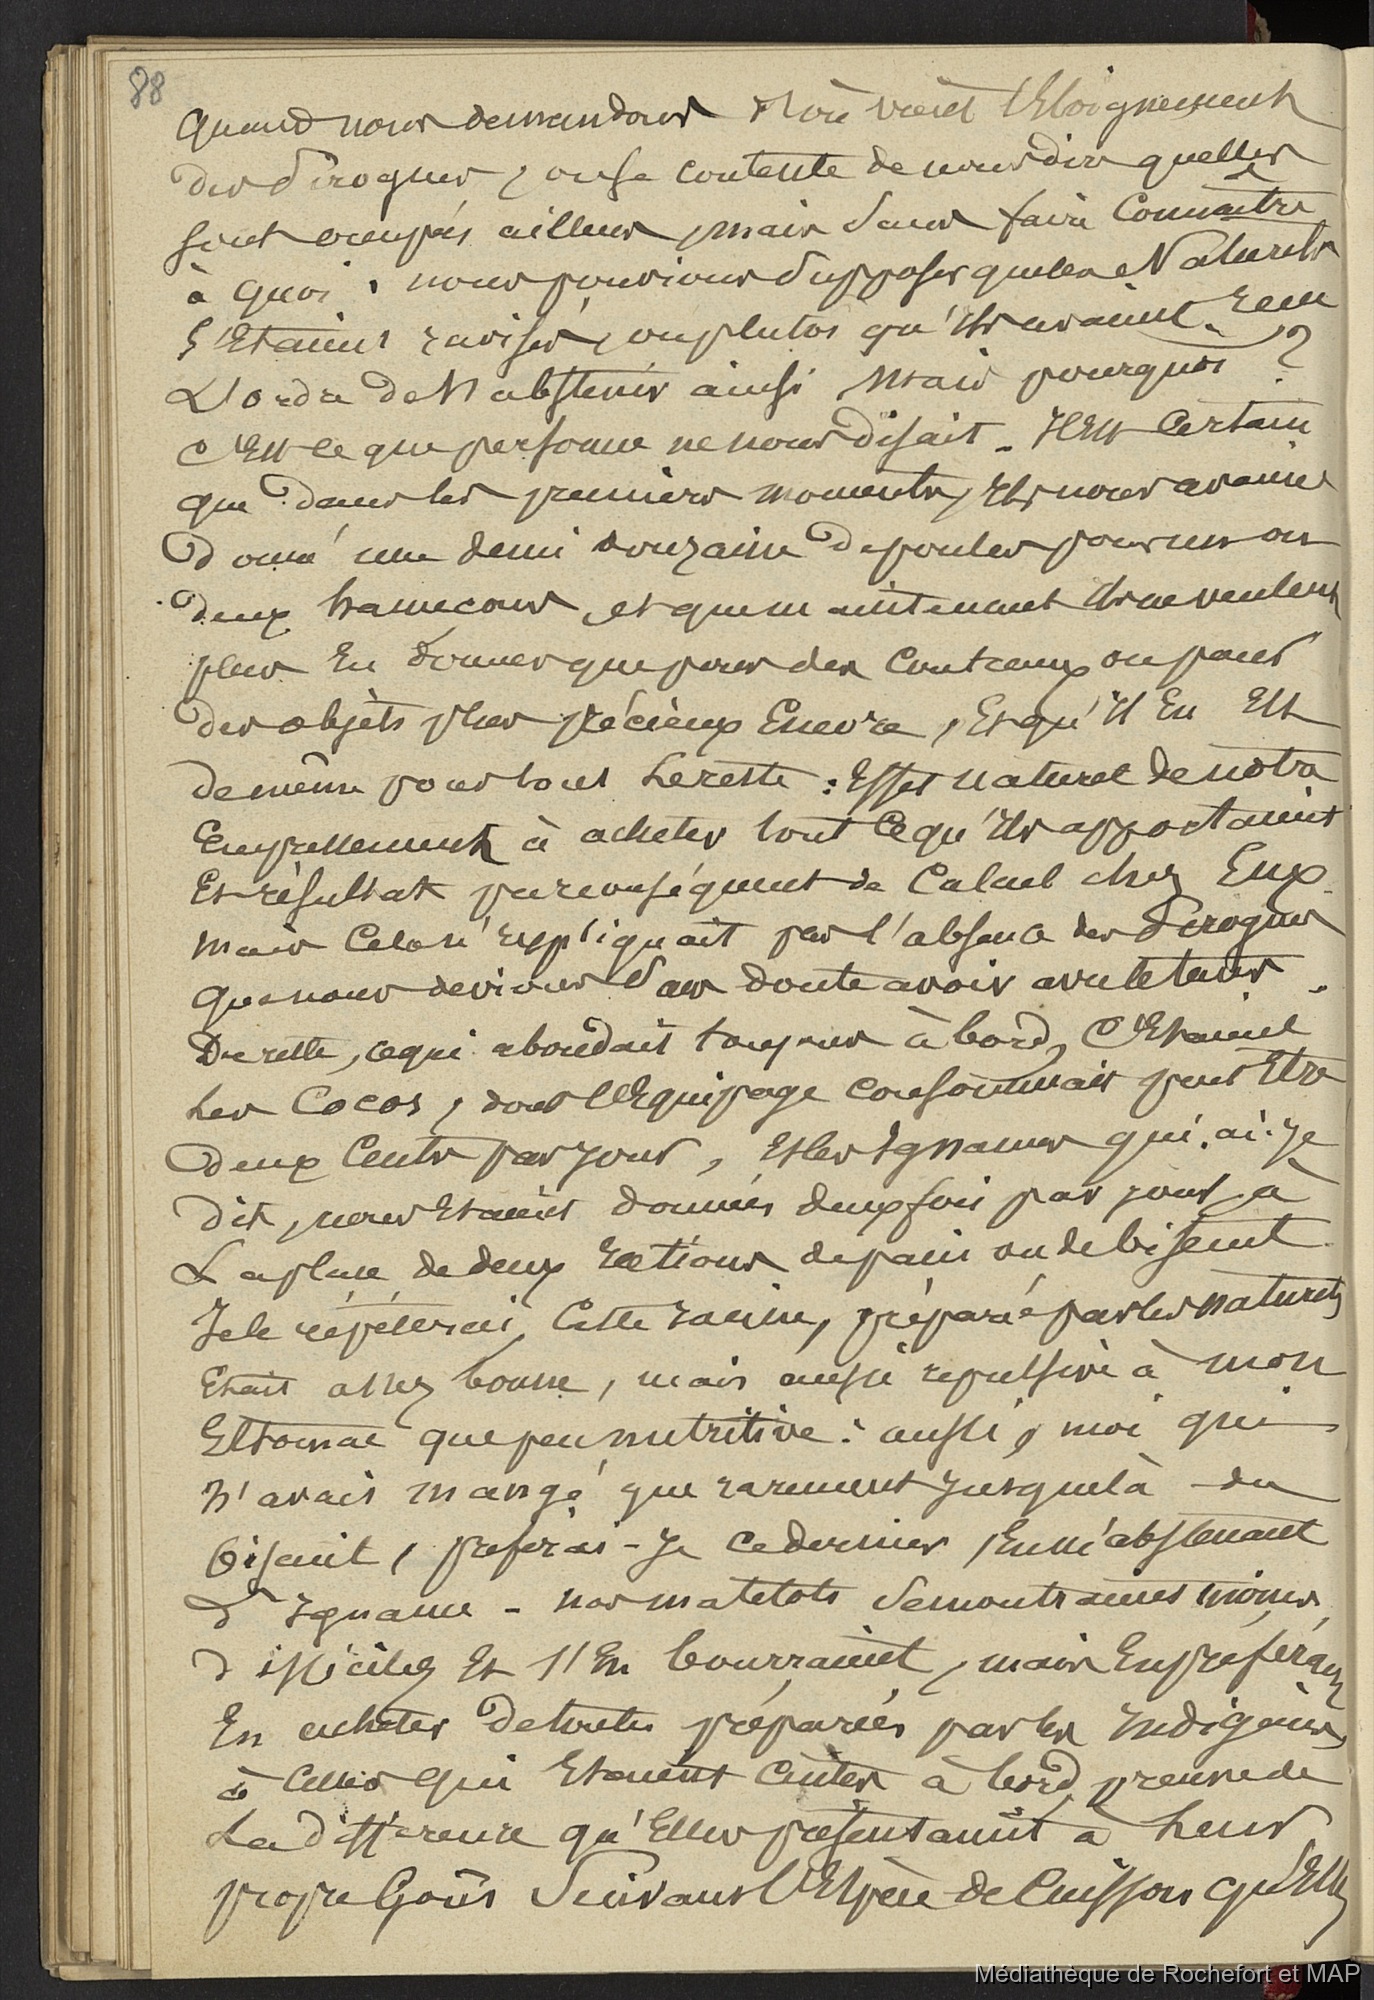 88
Quand nous demandons d'où vient l'Eloignement
des Pirogues, on se contente de nous dire quelles
sont occupées ailleurs, mais sans faire Connaître
à quoi. nous pouvions supposer que les Naturels
s'Etaient ravisés, ou plutôt qu'ils avaient reçu
L'ordre de s'abstenir ainsi, mais pourquoi ?
C'Est ce que personne ne nous disait. Il Est Certain
que dans les premiers moments, ils nous avaient
donné une demi douzaine de poules pour un ou
deux hameçons, et que maintenant ils ne veulent
plus En donner que pour des Couteaux ou pour
des objèts plus précieux Encore, Et qu'il En Est
de même pour tout Le reste : Effet naturel de notre
Empressement à acheter tout Ce qu'ils apportaient
Et résultat par conséquent de Calcul chez Eux.
mais Cela n'expliquait pas l'absence des Pirogues
que nous devions sans doute avoir avec le tems.
Du reste, ce qui abondait toujours à bord, C'Etaient
Les Cocos, dont l'Equipage consommait peut Etre
deux Cents par jour, Et les Ignames qui, ai-je
dit, nous Etaient données deux fois par jour, à
La place de deux rations de pain ou de biscuit.
Je le répéterai, Cette racine, préparée par les naturels
Etait assez bonne, mais aussi repulsive à mon
Estomac que peu nutritive : aussi, moi qui
n'avais mangé que rarement jusque là du
biscuit, préférai-je ce dernier, En m'abstenant
d'Igname. nos matelots se montraient moins
difficiles Et s'En bourraient, mais En préférant
En acheter de toutes préparées par les Indigènes,
à Celles qui Etaient Cuites à bord, preuve de
La différence qu'Elles présentaient à Leur
propre Goût Suivant l'Espèce de Cuisson qu'Elles
Médiathèque de Rochefort et MAP